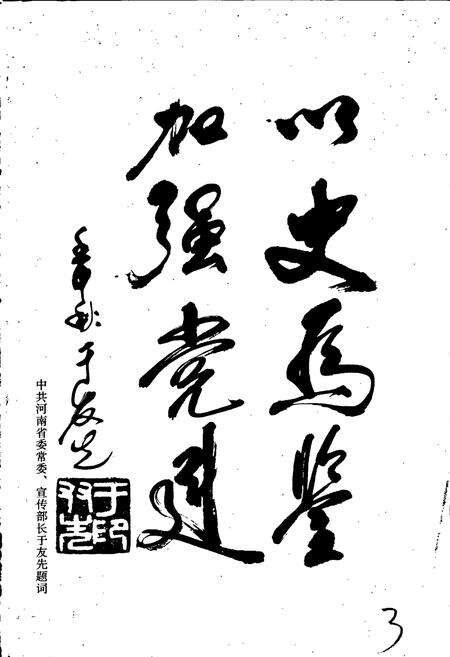 以史为鉴
加强党建
壬申秋 于友先
于友先印
中共河南省委常委、宣传部长于友先题词
3